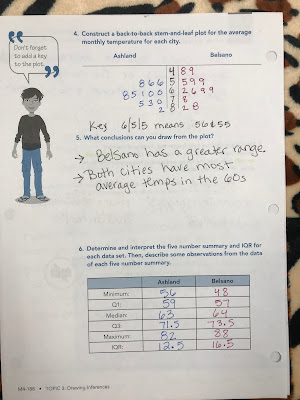 Don't forget
to add a key
to the plot.
4. Construct a back-to-back stem-and-leaf plot for the average
monthly temperature for each city.
Ashland Belsano
4 8 9
8 6 6 5 5 9 9
8 5 1 0 0 6 2 6 9 9
5 3 0 7 8
2 8 2 8
Key 6|5|5 means 56 & 55
5. What conclusions can you draw from the plot?
→ Belsano has a greater range
→ Both cities have most
average temps in the 60s
6. Determine and interpret the five number summary and IQR for
each data set. Then, describe some observations from the data
of each five number summary.
Ashland Belsano
Minimum: 56 48
Q1: 59 57
Median: 63 64
Q3: 71.5 73.5
Maximum: 82 88
IQR: 12.5 16.5
TOPIC 3: Drawing Inferences